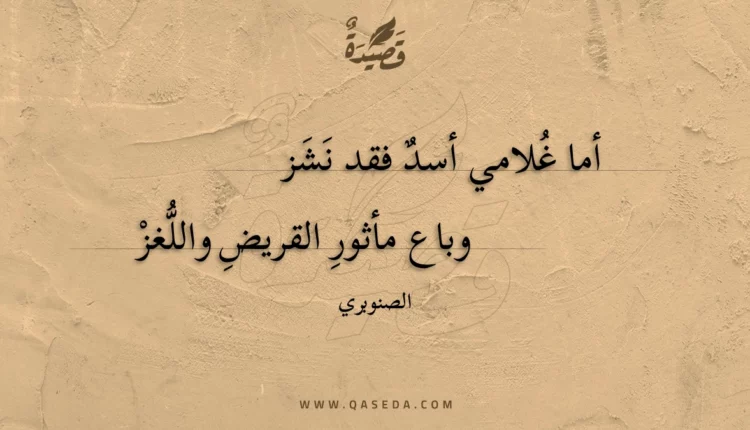 قَصِيْدَةٌ
أما غُلامي أسدٌ فقد نَشَز
وباع مأثورِ القريضِ واللُّغزْ
الصنوبري
WWW.QASEDA.COM